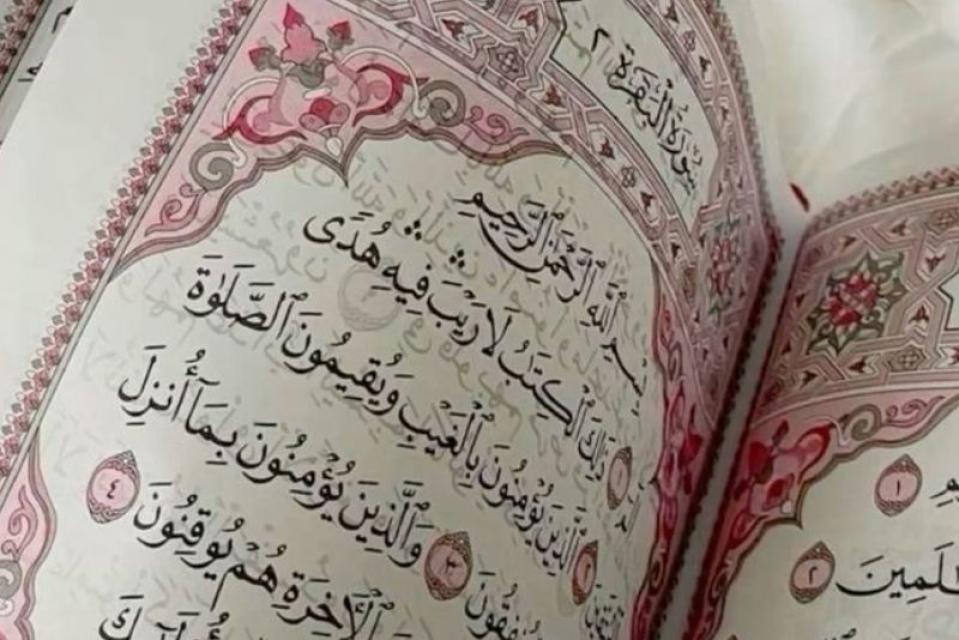 سُورَةُ الْبَقَرَةِ ٢
بِسْمِ ٱللَّهِ ٱلرَّحْمَٰنِ ٱلرَّحِيمِ
ذَٰلِكَ ٱلْكِتَٰبُ لَا رَيْبَ ۛ فِيهِ ۛ هُدًى
ٱلَّذِينَ يُؤْمِنُونَ بِٱلْغَيْبِ وَيُقِيمُونَ ٱلصَّلَوٰةَ
يُنفِقُونَ ٣ وَٱلَّذِينَ يُؤْمِنُونَ بِمَآ أُنزِلَ
ٱلْءَاخِرَةِ هُمْ يُوقِنُونَ ٤
١
ٱلْعَٰلَمِينَ ٢